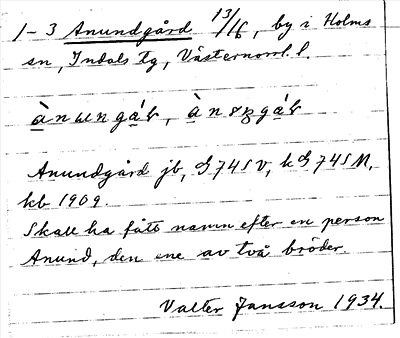 1-3 Anundgård 13/16, by i Holms
sn, Indals tg, Västernorrl. l.
Anundgård jb, G 745 V, k G 745 M,
kb 1909.
Skall ha fått namn efter en person
Anund, den ene av två bröder.
Valter Jansson 1934.